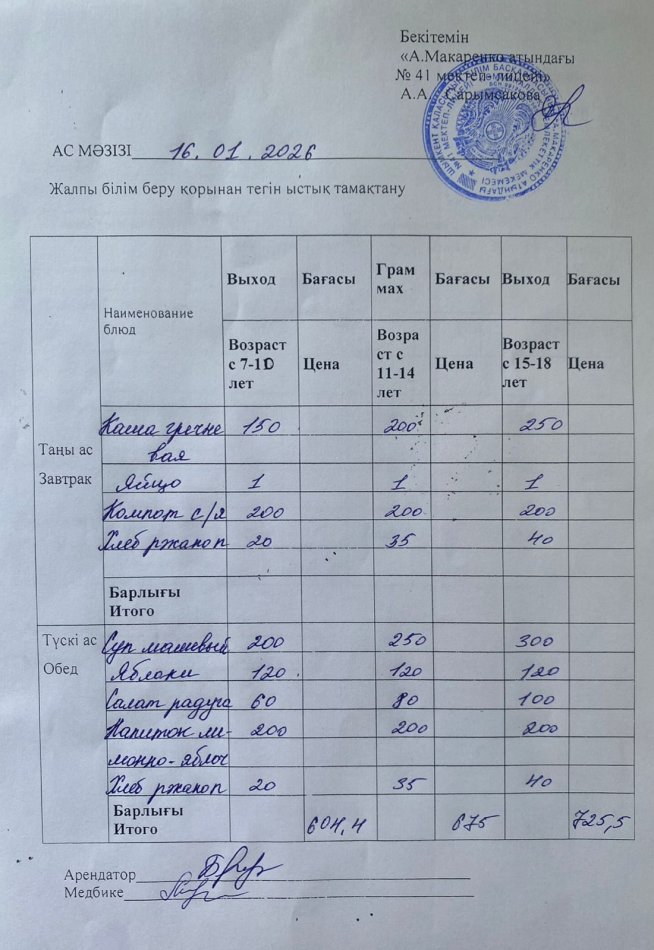 Бекітемін
«А.Макаренко атындағы
№ 41 мектеп- лицейі»
А.А. Сарымсакова
АС МӘЗІЗІ 16.01.2026
Жалпы білім беру қорынан тегін ыстық тамақтану
Наименование блюд Выход Бағасы Грам мах Бағасы Выход Бағасы
Возраст с 7-10 лет Цена Возра ст с 11-14 лет Цена Возраст с 15-18 лет Цена
Таңы ас
Завтрак
Каша гречневая 150 200 250
Яйцо 1 1 1
Компот с/я 200 200 200
Хлеб ржаноп 20 35 40
Барлығы
Итого
Түскі ас
Обед
Суп машевый 200 250 300
Яблоки 120 120 120
Салат радуга 60 80 100
Напиток ли-
монно-яблоч 200 200 200
Хлеб ржаноп 20 35 40
Барлығы
Итого 604,4 675 725,5
Арендатор
Медбике